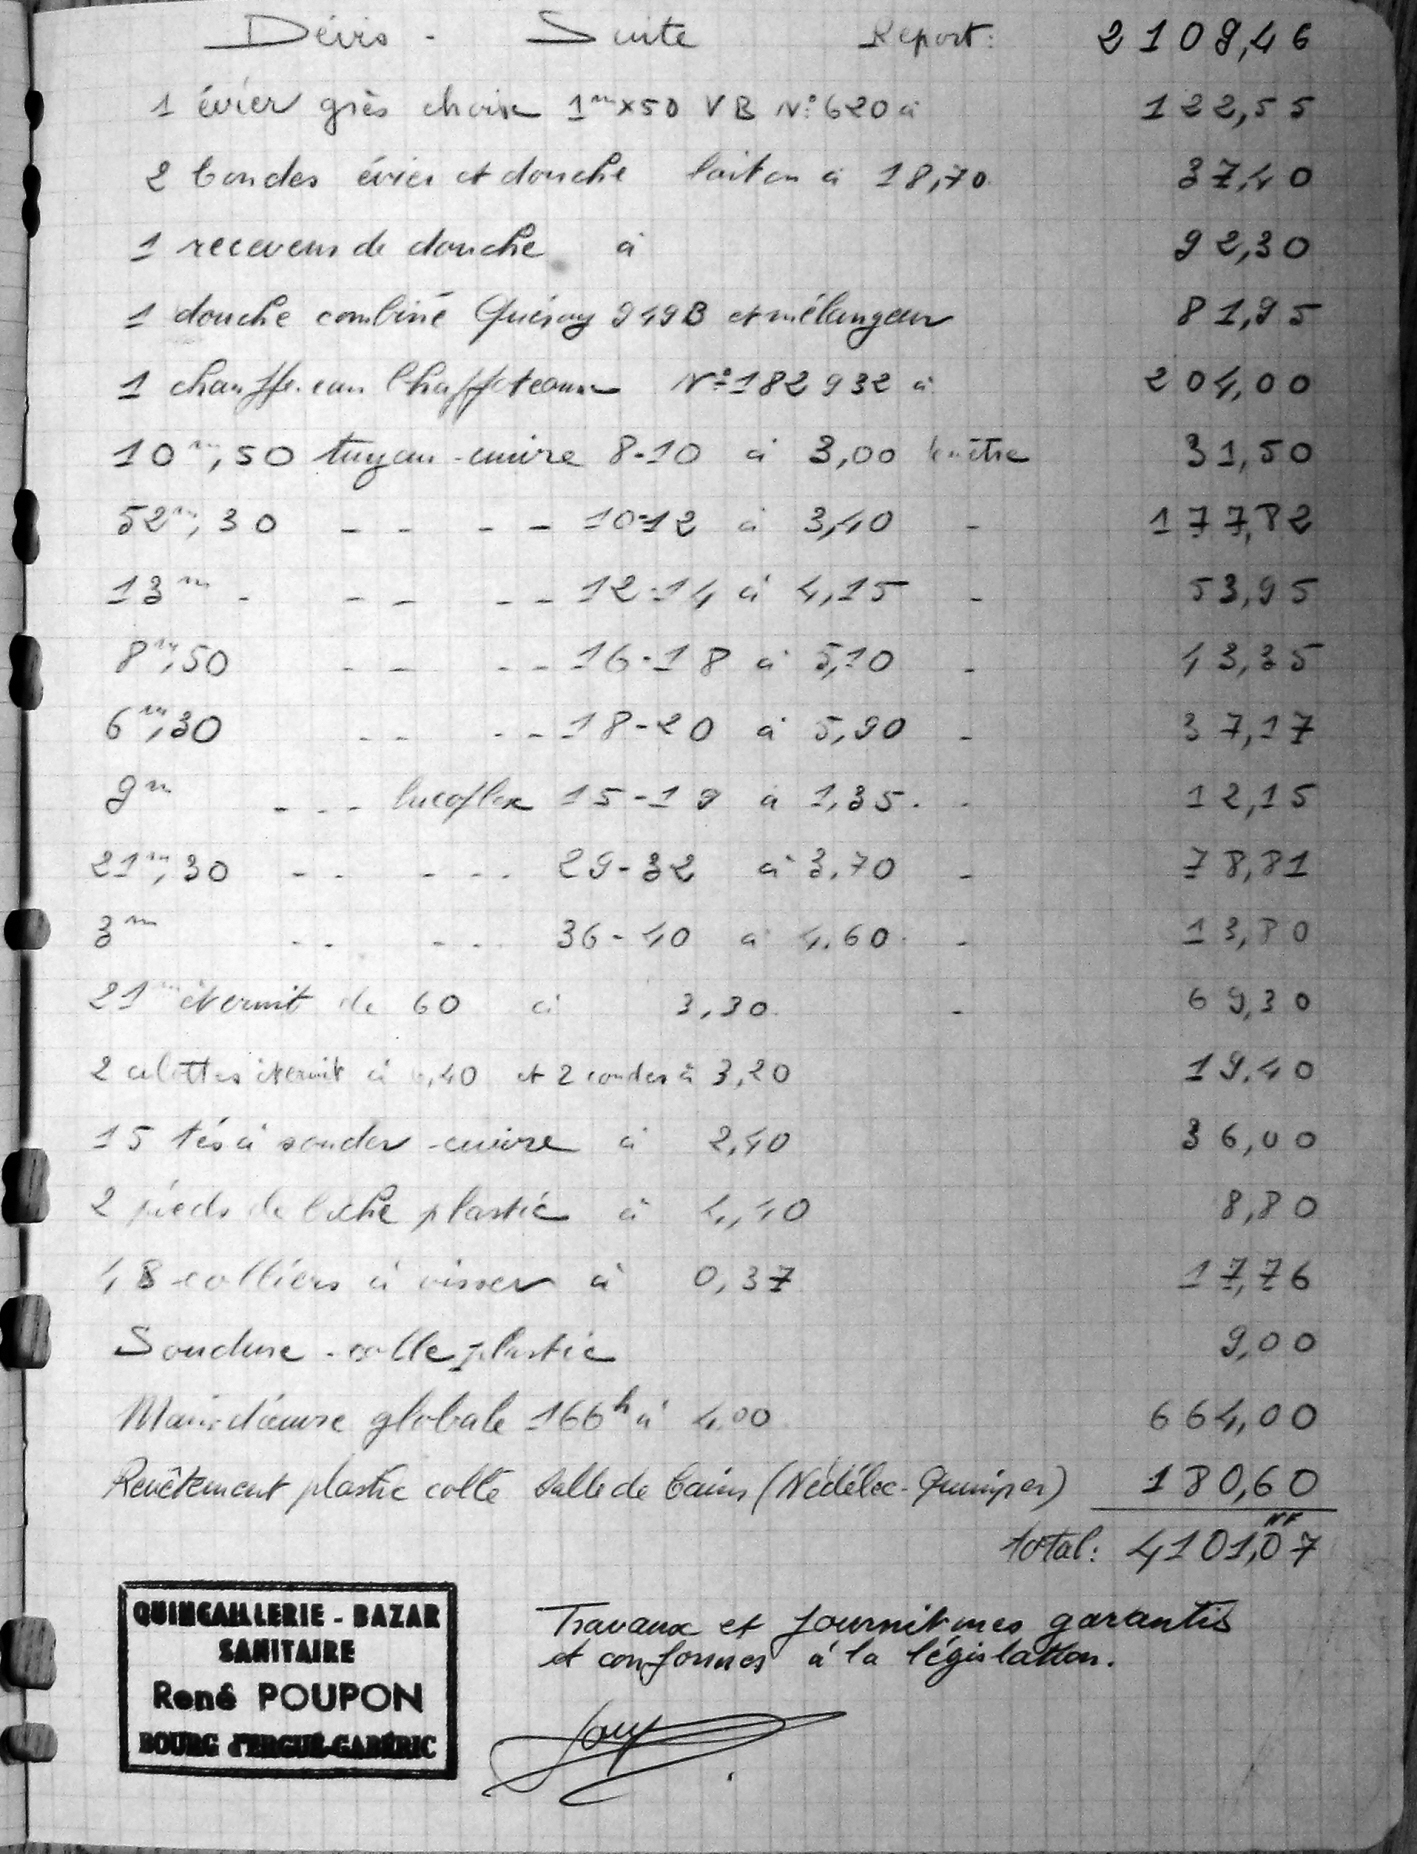 Devis - Suite Report: 2109,46
1 évier grès choix 1m x 50 VB N° 620 à 122,55
2 bondes évier et douche laiton à 18,70 37,40
1 receveur de douche à 92,30
1 douche combiné Quésay 949B et mélangeur 81,95
1 chauffe-eau Chaffoteaux N° 182932 à 204,00
10m,50 tuyau cuivre 8-10 à 3,00 le mètre 31,50
52m,30 - - - - 10-12 à 3,40 - 177,82
13m - - - - - 12-14 à 4,15 - 53,95
8m,50 - - - - 16-18 à 5,10 - 43,35
6m,30 - - - - 18-20 à 5,90 - 37,17
9m - - - lucoflex 15-19 à 1,35 - - 12,15
21m,30 - - - - - 29-32 à 3,70 - 78,81
3m - - - - - 36-40 à 4,60 - 13,80
21m éternit de 60 à 3,30 - 69,30
2 culottes éternit à 6,40 et 2 coudes à 3,20 19,40
15 tés à souder cuivre à 2,40 36,00
2 pieds de biche plastic à 4,40 8,80
48 colliers à visser à 0,37 17,76
Soudure - colle plastic 9,00
Main d'œuvre globale 166h à 4,00 664,00
Revêtement plastic collé Salle de bains (Nédélec-Quimper) 180,60
total: 4101,07 NF
Travaux et fournitures garantis
et conformes à la législation.
QUINCAILLERIE - BAZAR
SANITAIRE
René POUPON
BOURG d'ERGUÉ-GABÉRIC